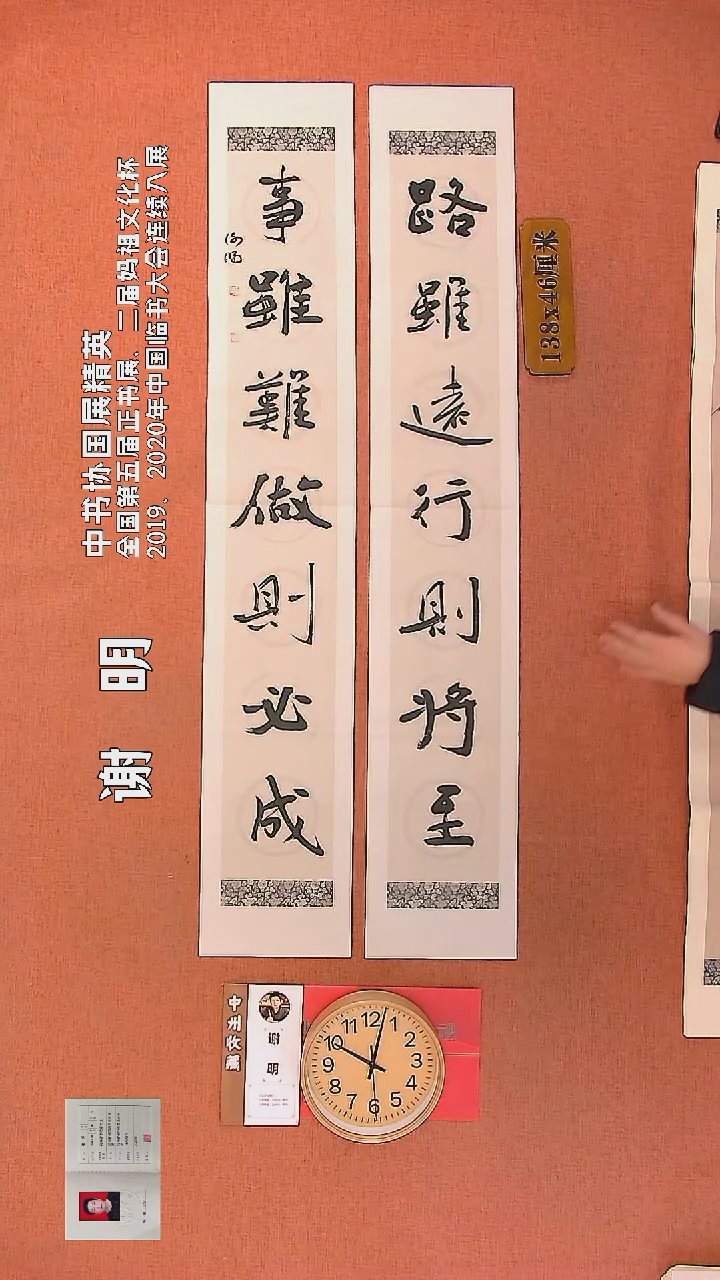 路雖遠行則將至
事雖難做則必成
谢明
138x46厘米
中书协国展精英
全国第五届正书展、二届妈祖文化杯
2019、2020年中国临书大会连续入展
谢 明
中州收藏
谢 明
12
1
2
3
4
5
6
7
8
9
10
11